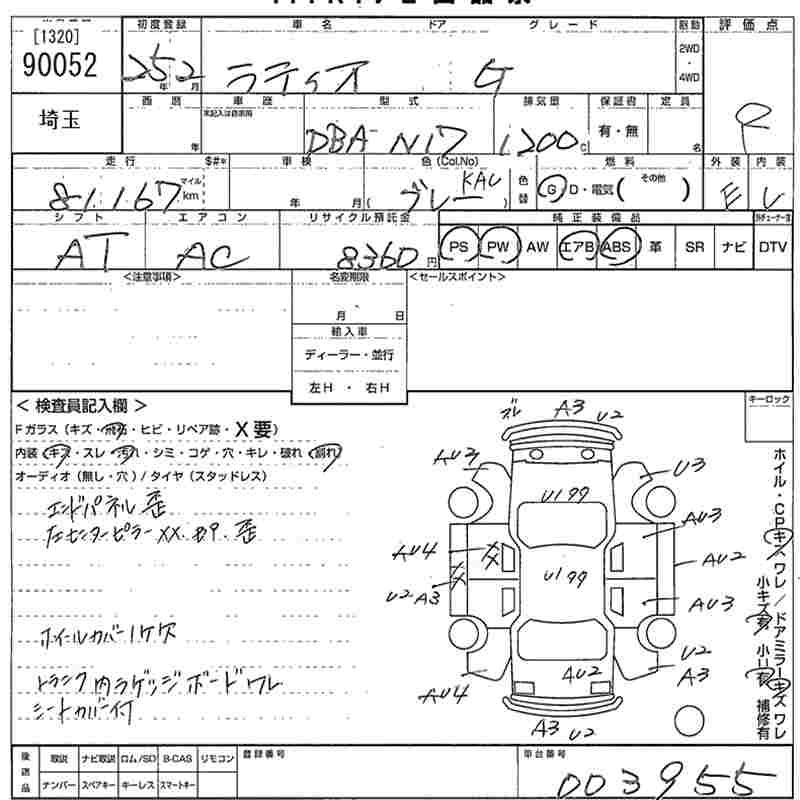 [1320]
90052
初度登録
車名
ドア
グレード
駆動
評価点
25 2
年 月
ラティオ
G
2WD
・
4WD
埼玉
西暦
年
車歴
未記入は自家用
型式
DBA-N17
排気量
1200
保証書
有・無
定員
名
走行
$#*
81,167
マイル
km
車検
年 月
色(Col.No)
グレー
KAC
色替
燃料
G D・電気( その他 )
外装
内装
E
シフト
AT
エアコン
AC
リサイクル預託金
8360 円
純正装備品
PS PW AW エアB ABS 革 SR ナビ DTV
<注意事項>
名変期限
月 日
輸入車
ディーラー・並行
左H ・ 右H
<セールスポイント>
<検査員記入欄>
キーロック
Fガラス(キズ・飛石・ヒビ・リペア跡・X要)
内装(キズ・スレ・汚れ・シミ・コゲ・穴・キレ・破れ・割れ)
オーディオ(無し・穴)/タイヤ(スタッドレス)
エンドパネル歪
左センターピラーXX.凹P.歪
ホイールカバー1ケ欠
トランク内ラゲッジボードワレ
シートカバー付
ズレ A3 U2
AU3
U3
U199
AU3
AU4 XX
AU2
U2 A3 XX
U199
AU3
U2
AU4
AU2
A3
A3 U2
ホイル・CPキズワレ/ドアミラーキズワレ
小キズ有 小凹有 補修有
後送品
取説 ナビ取説 ロム/SD B-CAS リモコン
ナンバー スペアキー キーレス スマートキー
登録番号
車台番号
003955